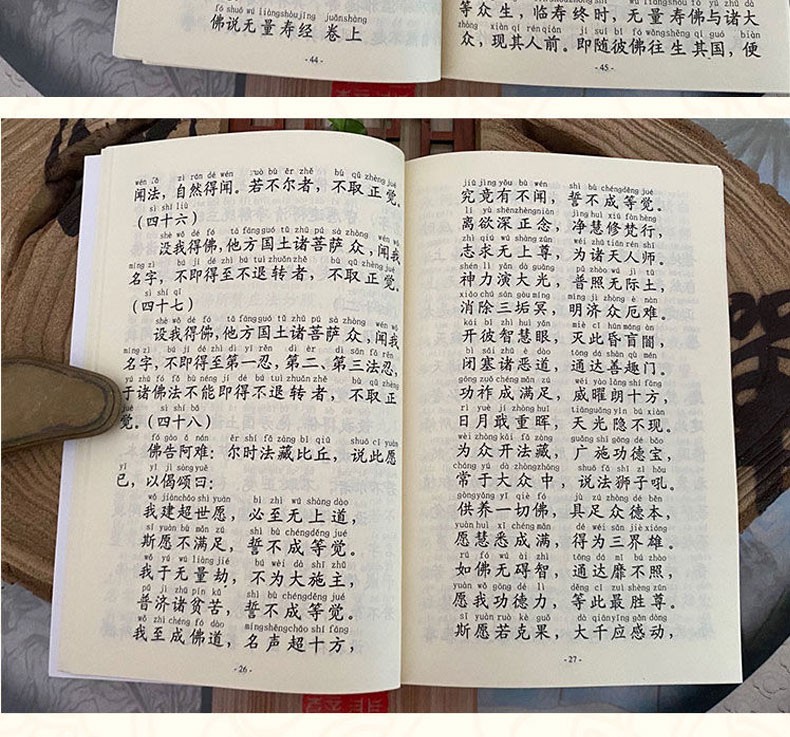 fó shuō wú liàngshòujīng juànshàng
佛说无量寿经 卷上
- 44 -
等众生，临寿终时，无量寿佛与诸大
zhòng xiàn qí rénqián jí suí bǐ fó wǎngshēng qí guó biàn
众，现其人前。即随彼佛往生其国，便
- 45 -
wén fǎ zì rán dé wén ruò bù ěr zhě bù qǔ zhèng jué
闻法，自然得闻。若不尔者，不取正觉。
sì shí liù
（四十六）
shè wǒ dé fó tā fāngguó tǔ zhū pú sà zhòng wén wǒ
设我得佛，他方国土诸菩萨众，闻我
míng zì bù jí dé zhì bú tuì zhuǎn zhě bù qǔ zhèng jué
名字，不即得至不退转者，不取正觉。
sì shí qī
（四十七）
shè wǒ dé fó tā fāngguó tǔ zhū pú sà zhòng wén wǒ
设我得佛，他方国土诸菩萨众，闻我
míng zì bù jí dé zhì dì yī rěn dì èr dì sān fǎ rěn
名字，不即得至第一忍，第二、第三法忍，
yú zhū fó fǎ bù néng jí dé bú tuì zhuǎn zhě bù qǔ zhèng
于诸佛法不能即得不退转者，不取正
jué sì shí bā
觉。（四十八）
fó gào ā nán ěr shí fǎ zàng bǐ qiū shuō cǐ yuàn
佛告阿难：尔时法藏比丘，说此愿
yǐ yǐ jì sòngyuē
已，以偈颂曰：
wǒ jiànchāo shì yuàn bì zhì wú shàng dào
我建超世愿，必至无上道，
sī yuàn bù mǎn zú shì bù chéngděng jué
斯愿不满足，誓不成等觉。
wǒ yú wú liàng jié bù wéi dà shī zhǔ
我于无量劫，不为大施主，
pǔ jì zhū pín kǔ shì bù chéngděng jué
普济诸贫苦，誓不成等觉。
wǒ zhì chéng fó dào míngshēngchāo shí fāng
我至成佛道，名声超十方，
- 26 -
jiū jìng yǒu bù wén shì bù chéngděng jué
究竟有不闻，誓不成等觉。
lí yù shēnzhèngniàn jìng huì xiū fàn hèng
离欲深正念，净慧修梵行，
zhì qiú wú shàng zūn wéi zhū tiān rén shī
志求无上尊，为诸天人师。
shén lì yǎn dà guāng pǔ zhào wú jì tǔ
神力演大光，普照无际土，
xiāo chú sān gòu míng míng jì zhòng è nàn
消除三垢冥，明济众厄难。
kāi bǐ zhì huì yǎn miè cǐ hūn máng àn
开彼智慧眼，灭此昏盲闇，
bì sāi zhū è dào tōng dá shàn qù mén
闭塞诸恶道，通达善趣门。
gōng zuò chéng mǎn zú wēi yào lǎng shí fāng
功祚成满足，威曜朗十方，
rì yuè jí chóng huī tiānguāng yǐn bú xiàn
日月戢重晖，天光隐不现。
wèi zhòng kāi fǎ zàng guǎng shī gōng dé bǎo
为众开法藏，广施功德宝，
cháng yú dà zhòngzhōng shuō fǎ shī zǐ hǒu
常于大众中，说法狮子吼。
gòngyǎng yī qiè fó jù zú zhòng dé běn
供养一切佛，具足众德本，
yuàn huì xī chéng mǎn dé wéi sān jiè xióng
愿慧悉成满，得为三界雄。
rú fó wú ài zhì tōng dá mǐ bú zhào
如佛无碍智，通达靡不照，
yuàn wǒ gōng dé lì děng cǐ zuì shèng zūn
愿我功德力，等此最胜尊。
sī yuàn ruò kè guǒ dà qiān yīng gǎn dòng
斯愿若克果，大千应感动，
- 27 -